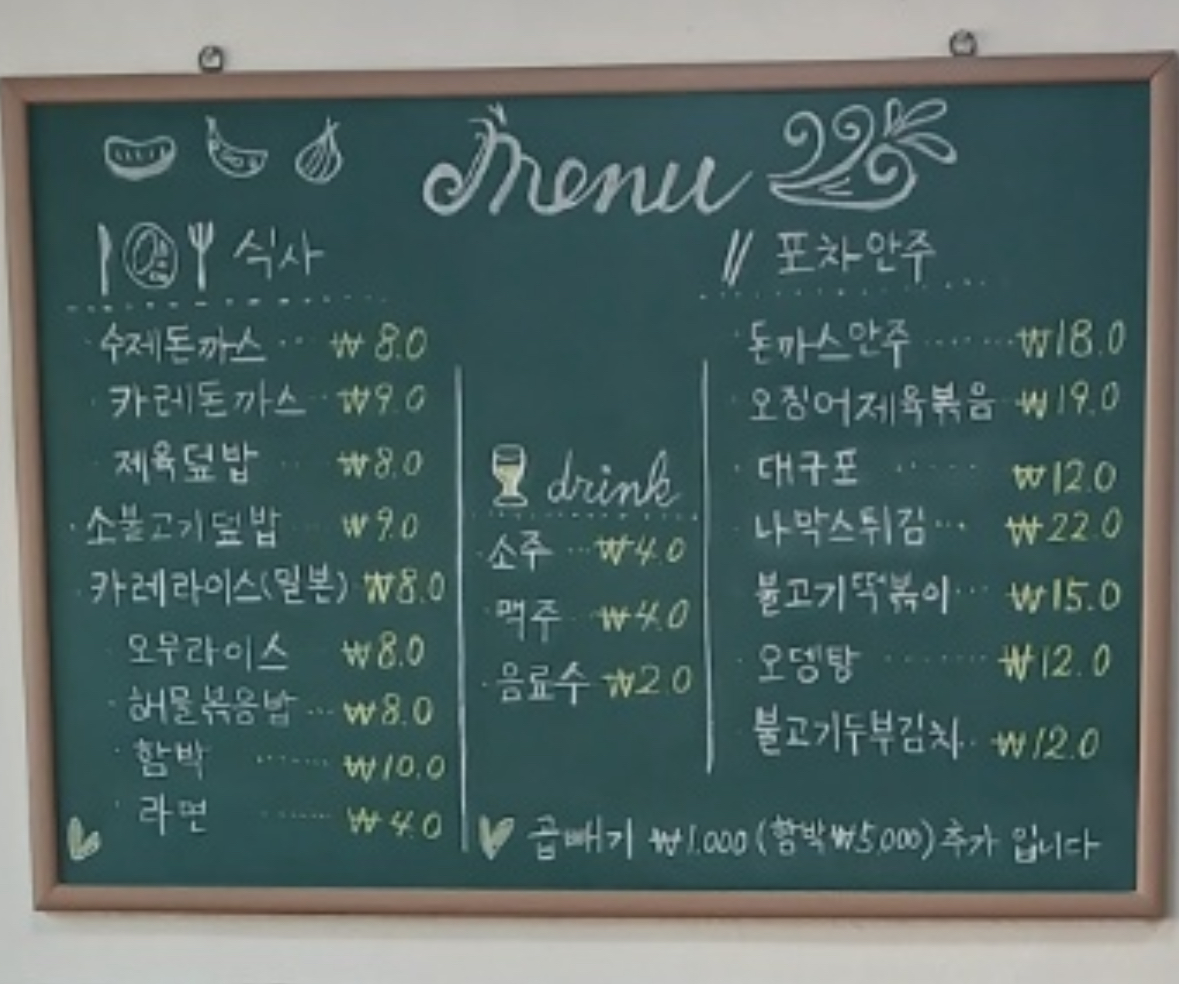 Menu
식사
수제돈까스 ₩8.0
카레돈까스 ₩9.0
제육덮밥 ₩8.0
소불고기덮밥 ₩9.0
카레라이스(일본) ₩8.0
오무라이스 ₩8.0
해물볶음밥 ₩8.0
함박 ₩10.0
라면 ₩4.0
drink
소주 ₩4.0
맥주 ₩4.0
음료수 ₩2.0
포차안주
돈까스안주 ₩18.0
오징어제육볶음 ₩19.0
대구포 ₩12.0
나막스튀김 ₩22.0
불고기떡볶이 ₩15.0
오뎅탕 ₩12.0
불고기두부김치 ₩12.0
곱빼기 ₩1.000 (함박₩5.000) 추가 입니다